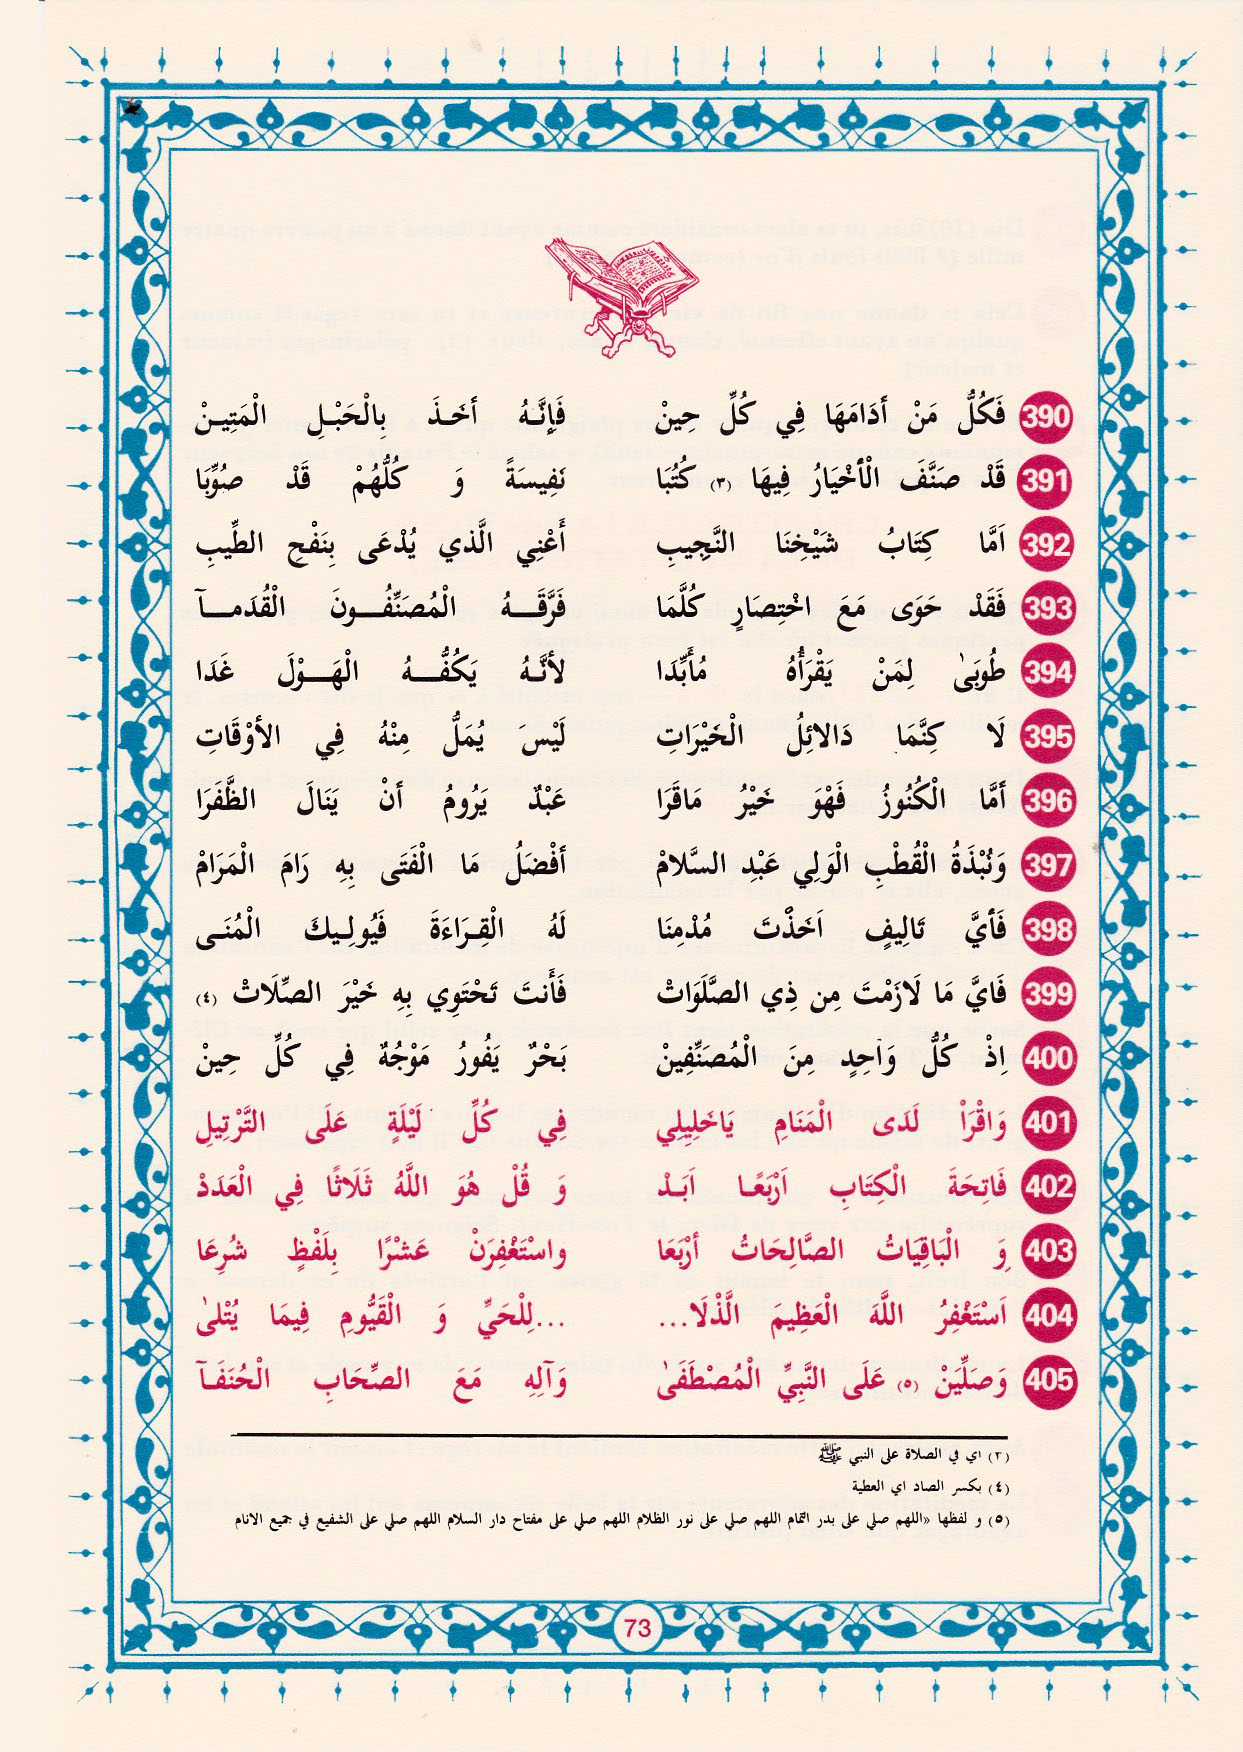 390 فَكُلُّ مَنْ أدَامَهَا فِي كُلِّ حِينْ فَإنَّهُ أخَذَ بِالْحَبْلِ الْمَتِينْ
391 قَدْ صَنَّفَ الْأخْيَارُ فِيهَا (٣) كُتُبَا نَفِيسَةً وَ كُلُّهُمْ قَدْ صُوِّبَا
392 اَمَّا كِتَابُ شَيْخِنَا النَّجِيبِ أَعْنِي الَّذي يُدْعَى بِنَفْحِ الطِّيبِ
393 فَقَدْ حَوَى مَعَ اخْتِصَارٍ كُلَّمَا فَرَّقَهُ الْمُصَنِّفُونَ الْقُدَمآ
394 طُوبَىٰ لِمَنْ يَقْرَأُهُ مُأَبِّدَا لأنَّهُ يَكُفُّهُ الْهَوْلَ غَدَا
395 لَا كِنَّمَا دَالائِلُ الْخَيْرَاتِ لَيْسَ يُمَلُّ مِنْهُ فِي الأوْقَاتِ
396 أمَّا الْكُنُوزُ فَهْوَ خَيْرُ مَاقَرَا عَبْدٌ يَرُومُ أنْ يَنَالَ الظَّفَرَا
397 وَنُبْذَةُ الْقُطْبِ الْوَلِي عَبْدِ السَّلامْ أفْضَلُ مَا الْفَتَى بِهِ رَامَ الْمَرَامْ
398 فَأيَّ تَالِيفٍ اَخَذْتَ مُدْمِنَا لَهُ الْقِرَاءَةَ فَيُولِيكَ الْمُنَى
399 فَايَّ مَا لَازَمْتَ مِن ذِي الصَّلَوَاتْ فَأَنتَ تَحْتَوِي بِهِ خَيْرَ الصِّلَاتْ (٤)
400 اِذْ كُلُّ وَاحِدٍ مِنَ الْمُصَنِّفِينْ بَحْرٌ يَفُورُ مَوْجُهُ فِي كُلِّ حِينْ
401 وَاقْرَأْ لَدَى الْمَنَامِ يَاخَلِيلِي فِي كُلِّ لَيْلَةٍ عَلَى التَّرْتِيلِ
402 فَاتِحَةَ الْكِتَابِ اَرْبَعًا اَبَدْ وَ قُلْ هُوَ اللَّهُ ثَلَاثًا فِي الْعَدَدْ
403 وَ الْبَاقِيَاتُ الصَّالِحَاتُ أرْبَعَا واسْتَغْفِرَنْ عَشْرًا بِلَفْظٍ شُرِعَا
404 اَسْتَغْفِرُ اللَّهَ الْعَظِيمَ الَّذْلَا... ...لِلْحَيِّ وَ الْقَيُّومِ فِيمَا يُتْلىٰ
405 وَصَلِّيَنْ (٥) عَلَى النَّبِيِّ الْمُصْطَفَىٰ وَآلِهِ مَعَ الصِّحَابِ الْحُنَفَآ
(٣) اي في الصلاة على النبي ﷺ
(٤) بكسر الصاد اي العطية
(٥) و لفظها «اللهم صلي على بدر التمام اللهم صلي على نور الظلام اللهم صلي على مفتاح دار السلام اللهم صلي على الشفيع في جميع الانام
73